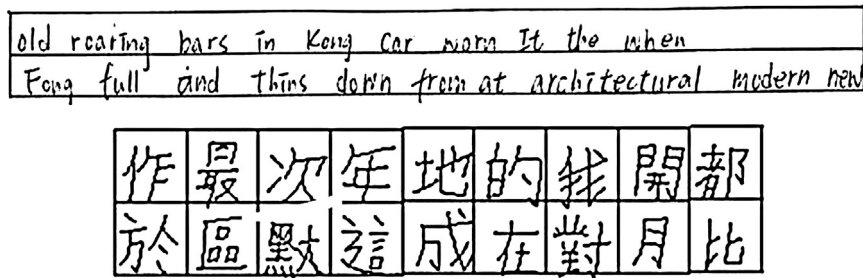 old roaring bars in Kong Car worn It the when
Fong full and thins down from at architectural modern new
作最次年地的我開都
於區點這成在對月比